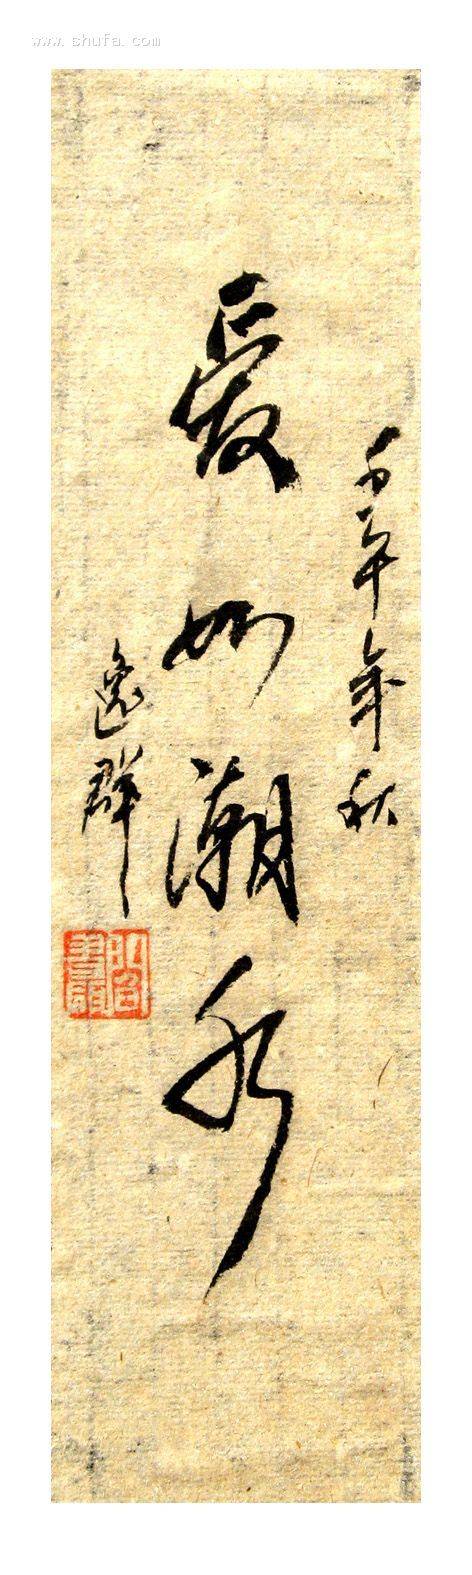 www.shufa.com
壬午年秋
爱如潮水
逸群